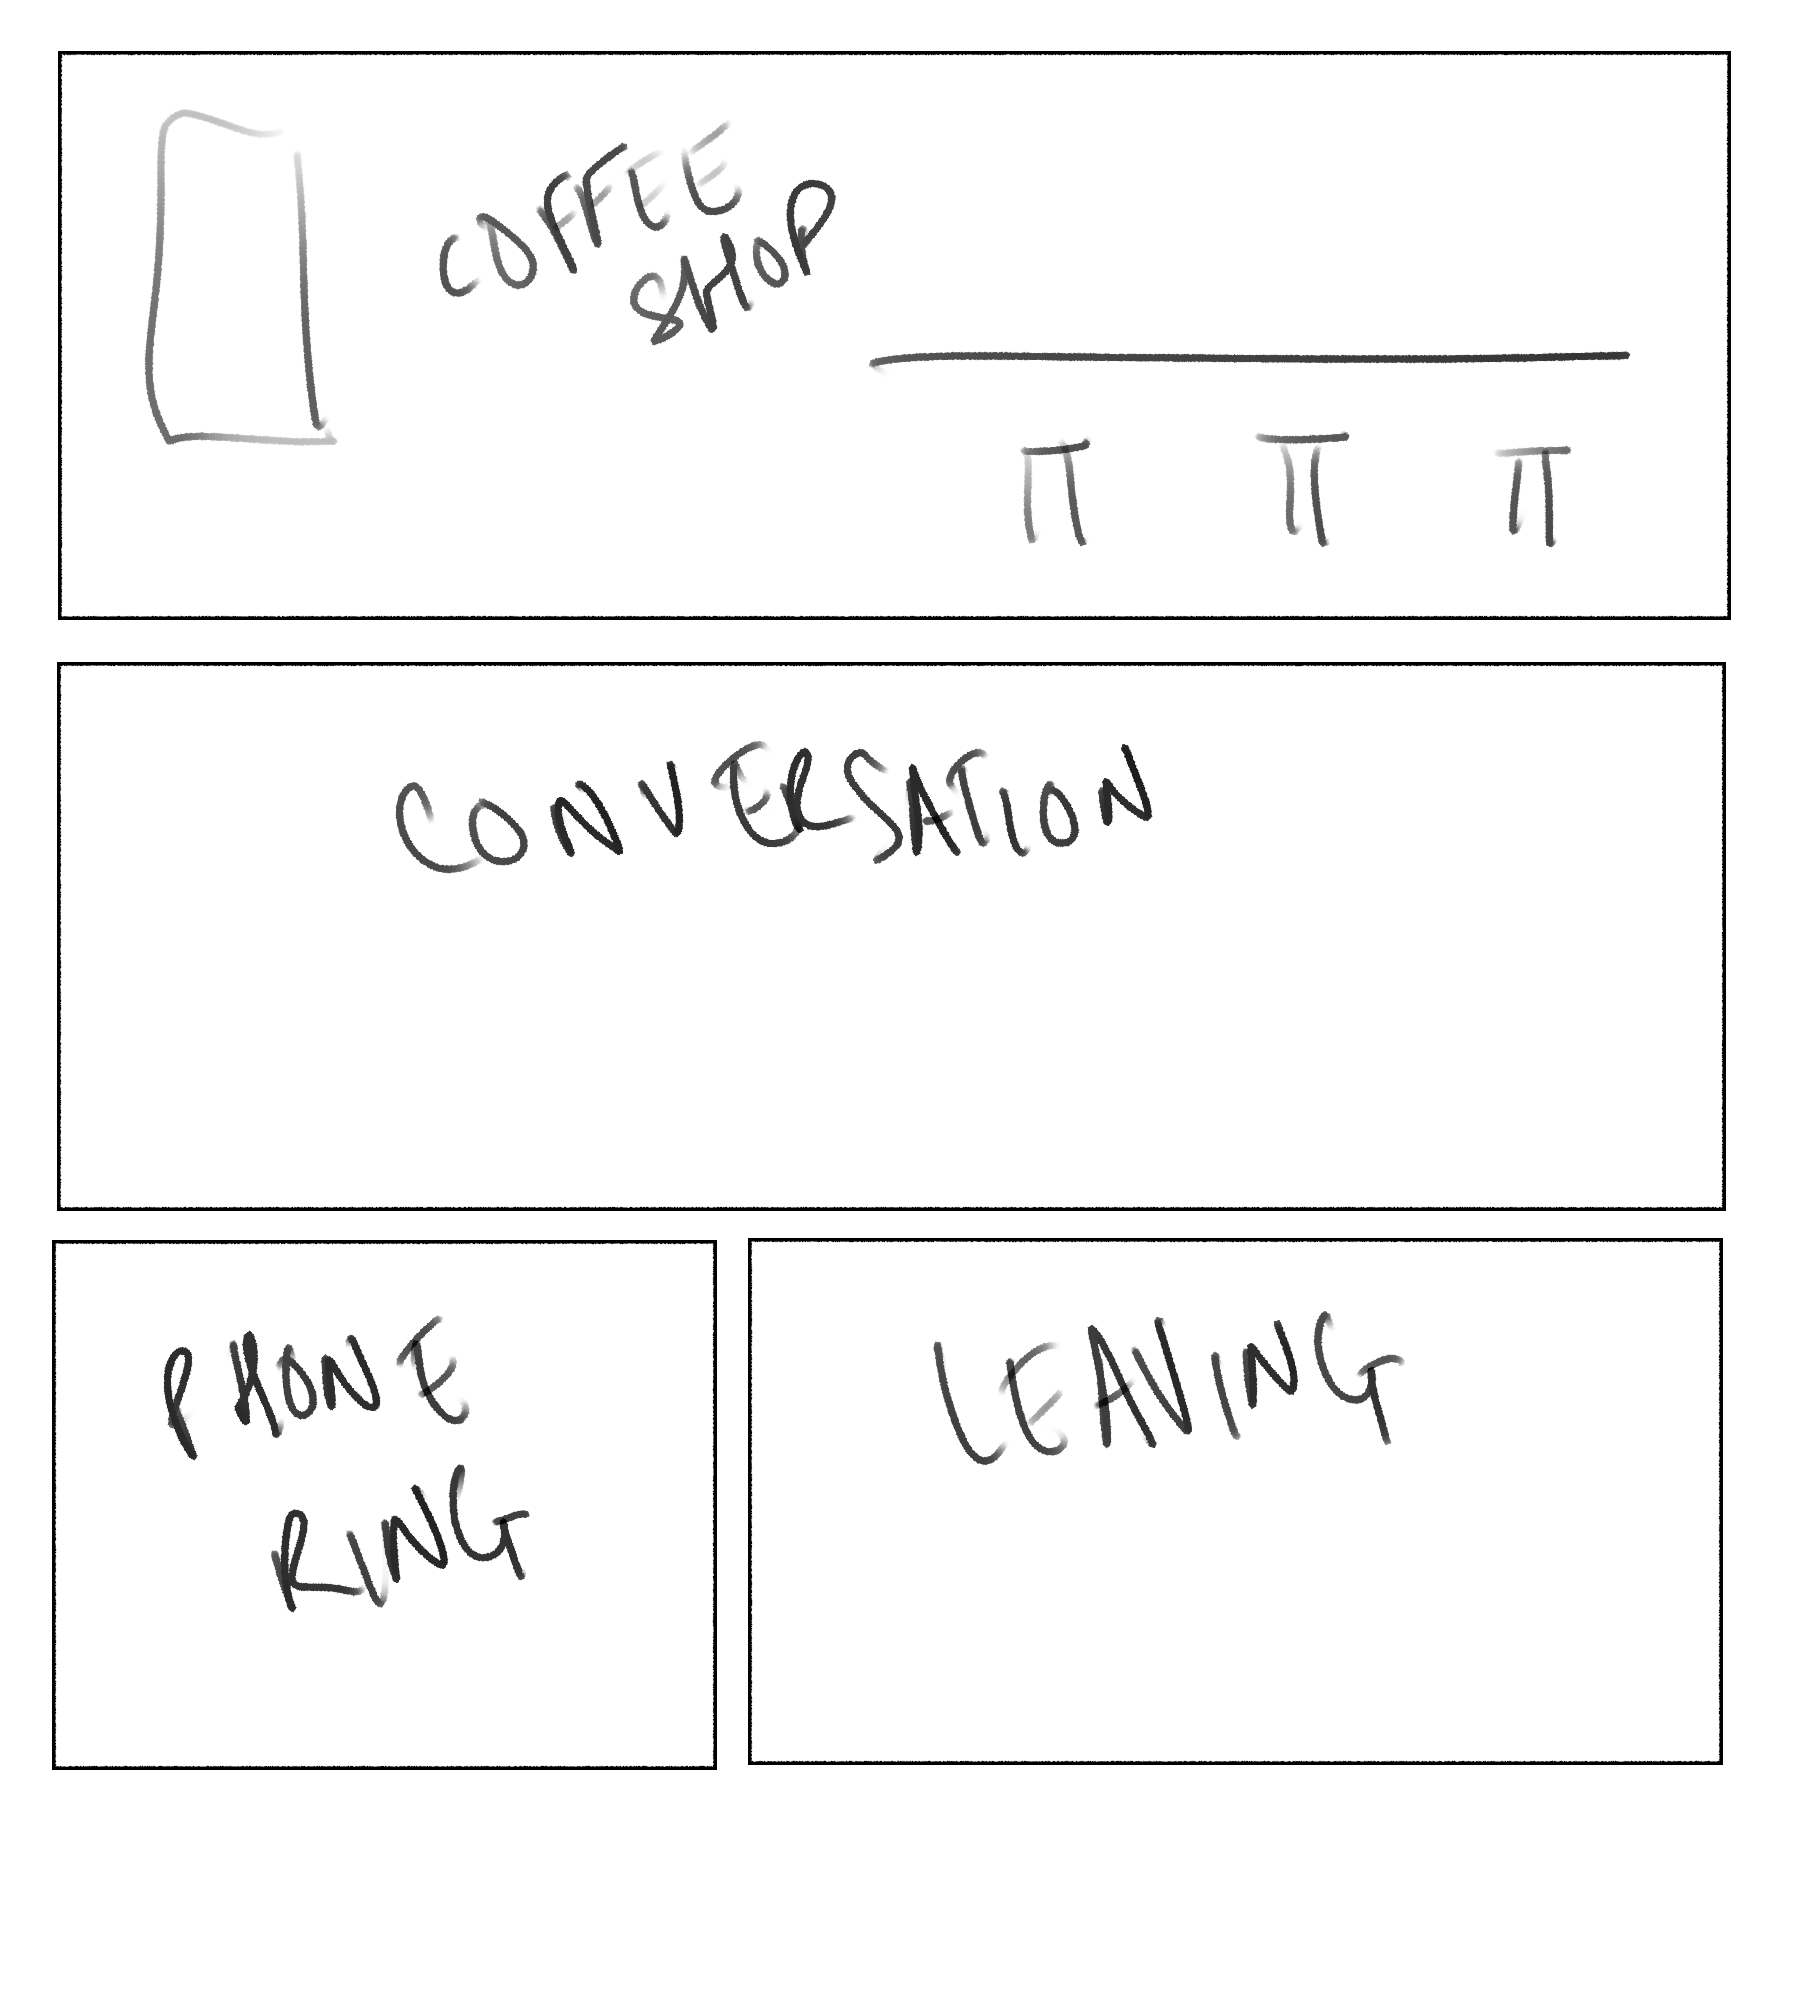 COFFEE
SHOP
CONVERSATION
PHONE
RING
LEAVING